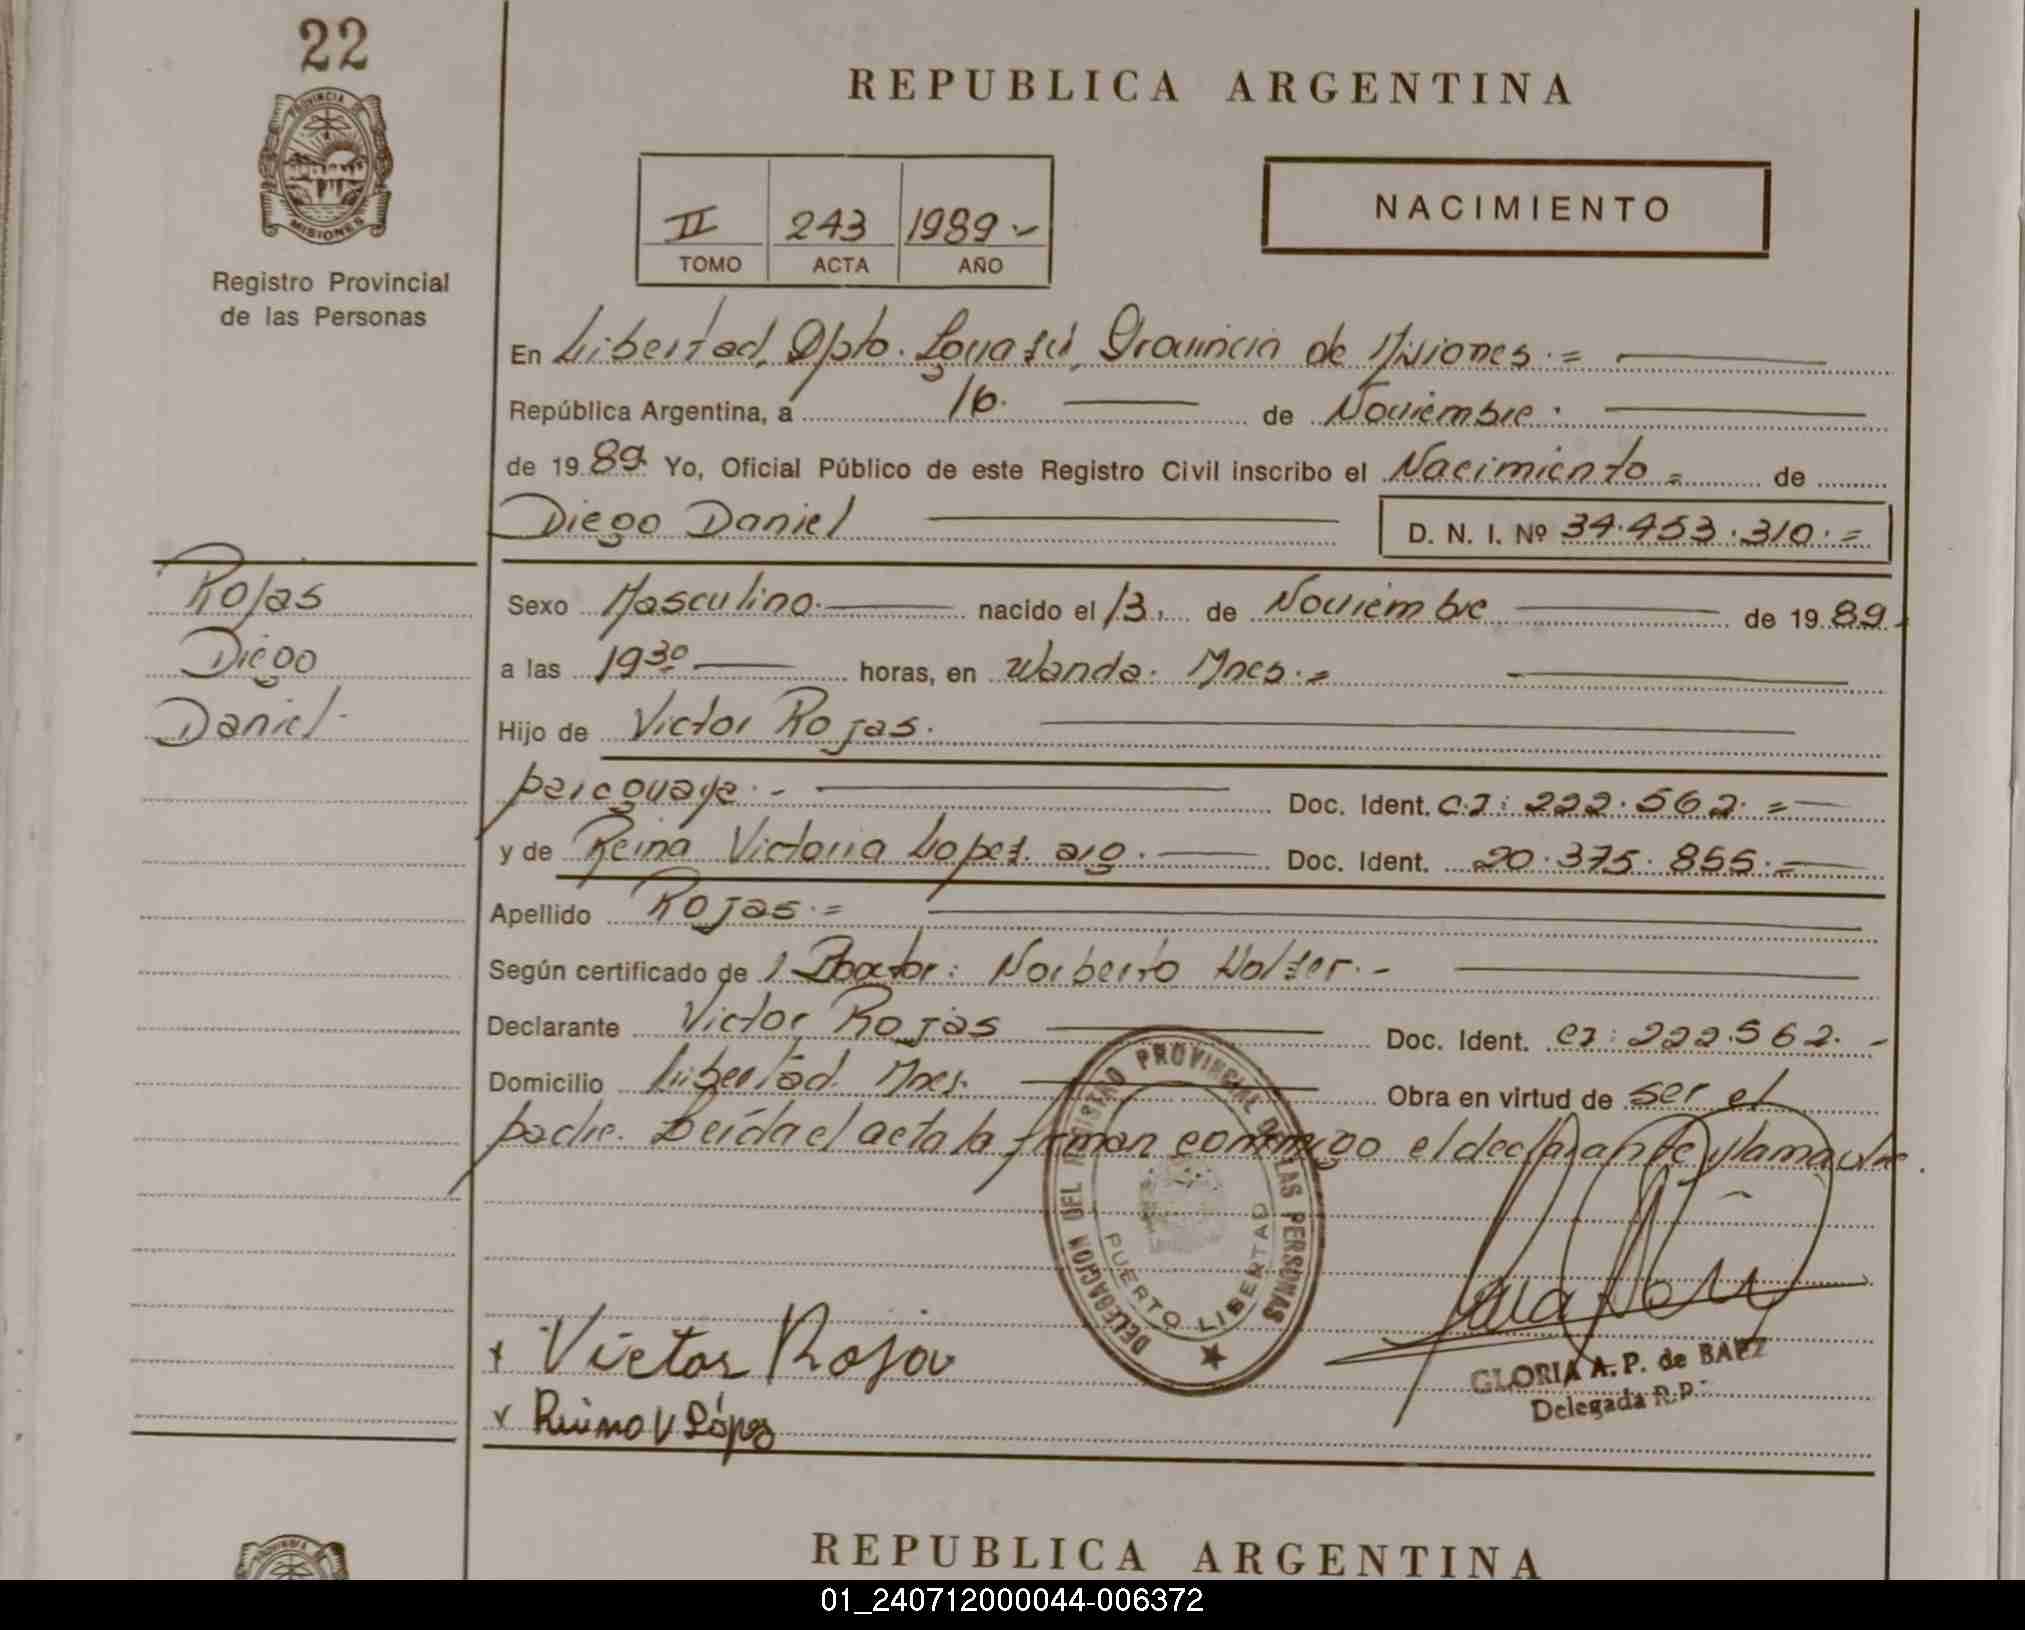 22
PROVINCIA DE
MISIONES
Registro Provincial
de las Personas
REPUBLICA ARGENTINA
II 243 1989
TOMO ACTA AÑO
NACIMIENTO
En Libertad, Dpto. Iguazú, Provincia de Misiones.=
República Argentina, a 16. de Noviembre.
de 1989 Yo, Oficial Público de este Registro Civil inscribo el Nacimiento de
Diego Daniel D. N. I. Nº 34.453.310.=
Rojas
Diego
Daniel
Sexo Masculino. nacido el 13, de Noviembre de 1989
a las 19 30 horas, en Wanda. Mnes.=
Hijo de Victor Rojas.
paraguaya.- Doc. Ident. C.I: 222.562.=
y de Reina Victoria Lopez. arg. Doc. Ident. 20.375.855.=
Apellido Rojas.=
Según certificado de Doctor: Norberto Wolser.-
Declarante Victor Rojas Doc. Ident. CI: 222.562.-
Domicilio Libertad. Mnes. Obra en virtud de ser el
padre. Leída el acta la firman conmigo el declarante y la madre.
DELEGACION DEL REGISTRO PROVINCIAL DE LAS PERSONAS
PUERTO LIBERTAD
Victor Roja
GLORIA A. P. de BAEZ
Delegada R.P.
Reina V López
REPUBLICA ARGENTINA
01_240712000044-006372